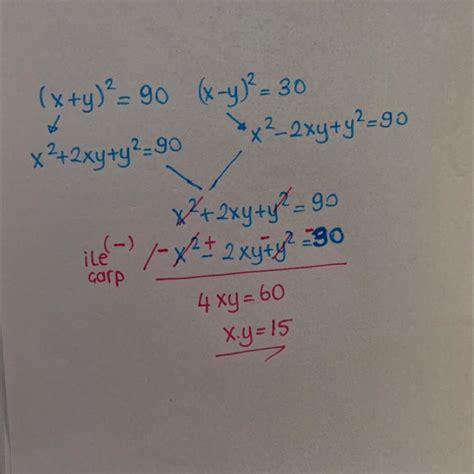 (x+y)²=90 (x-y)²=30
x²+2xy+y²=90 x²-2xy+y²=90
x²+2xy+y²=90
ile (-) çarp /-x²+-2xy-+y²=-30
4xy=60
x.y=15